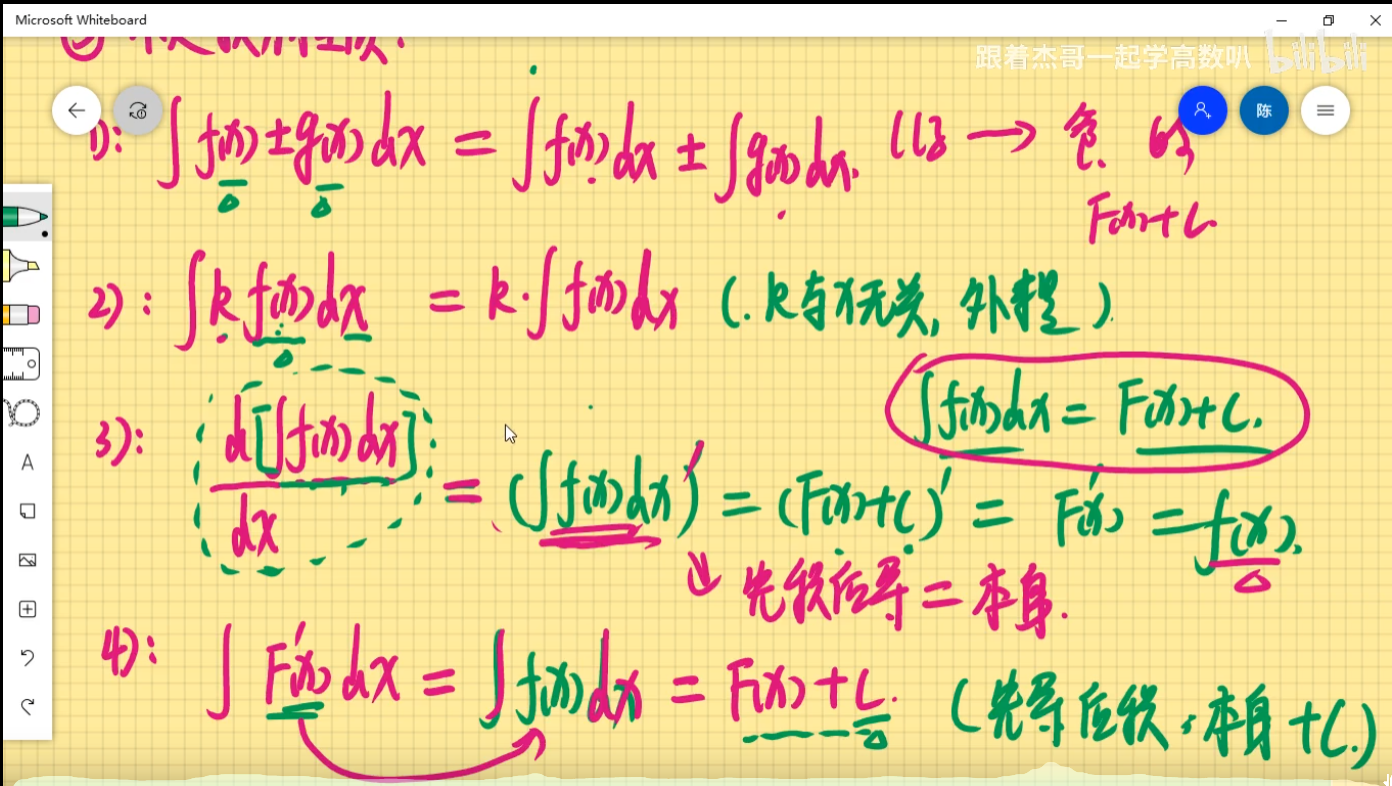 Microsoft Whiteboard
跟着杰哥一起学高数叭 bilibili
陈
1): ∫ f(x) ± g(x) dx = ∫ f(x) dx ± ∫ g(x) dx. 的
F(x)+C
2): ∫ k f(x) dx = k·∫ f(x) dx (k与x无关, 外提).
∫ f(x) dx = F(x)+C.
3): d[∫ f(x) dx] / dx = (∫ f(x) dx)' = (F(x)+C)' = F'(x) = f(x).
先积后导=本身.
4): ∫ F'(x) dx = ∫ f(x) dx = F(x)+C. (先导后积, 本身+C.)
A